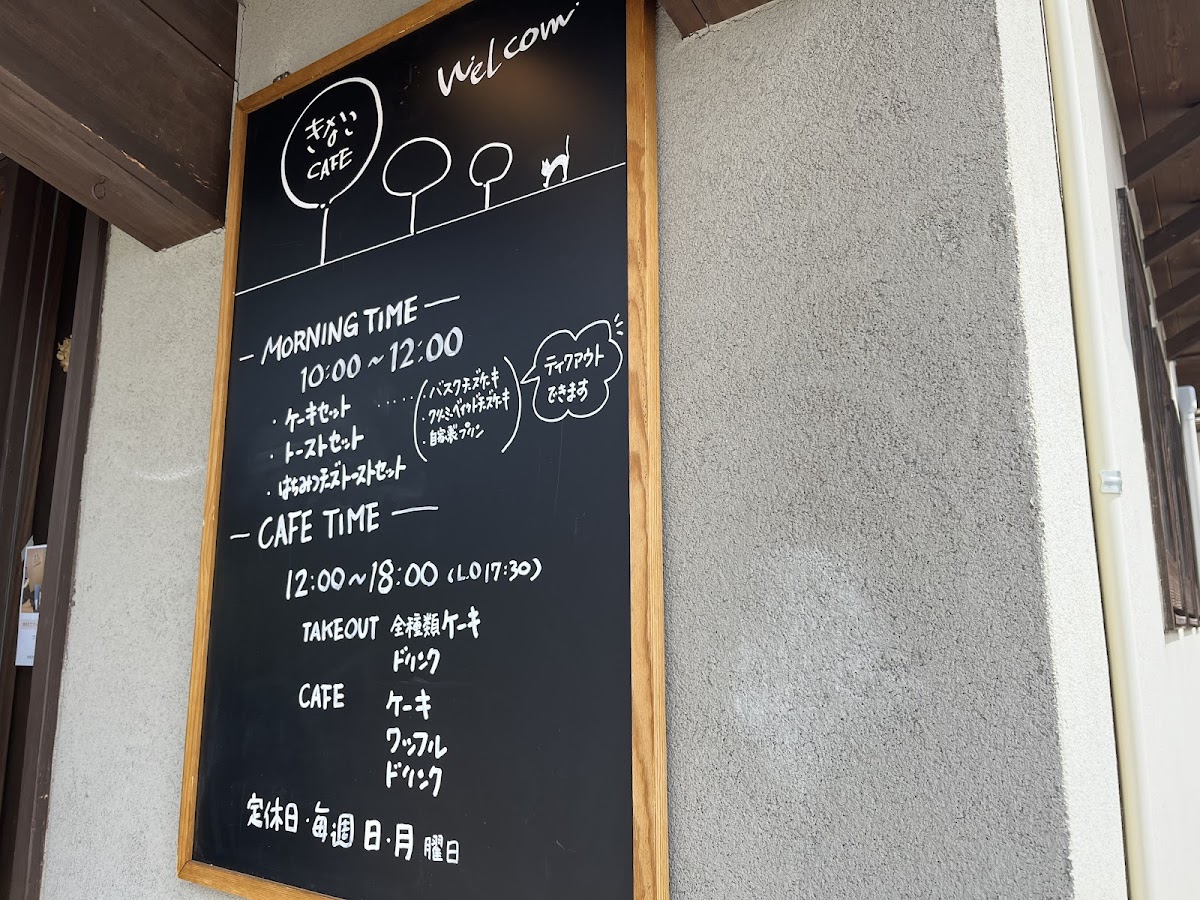 Welcom
きない
CAFE
— MORNING TIME —
10:00~12:00
・ケーキセット ……
・トーストセット
・はちみつチーズトーストセット
・バスクチーズケーキ
・クリーミーベイクドチーズケーキ
・自家製プリン
ティクアウト
できます
— CAFE TIME —
12:00~18:00 (L.O 17:30)
TAKEOUT 全種類ケーキ
ドリンク
CAFE ケーキ
ワッフル
ドリンク
定休日・毎週 日・月 曜日